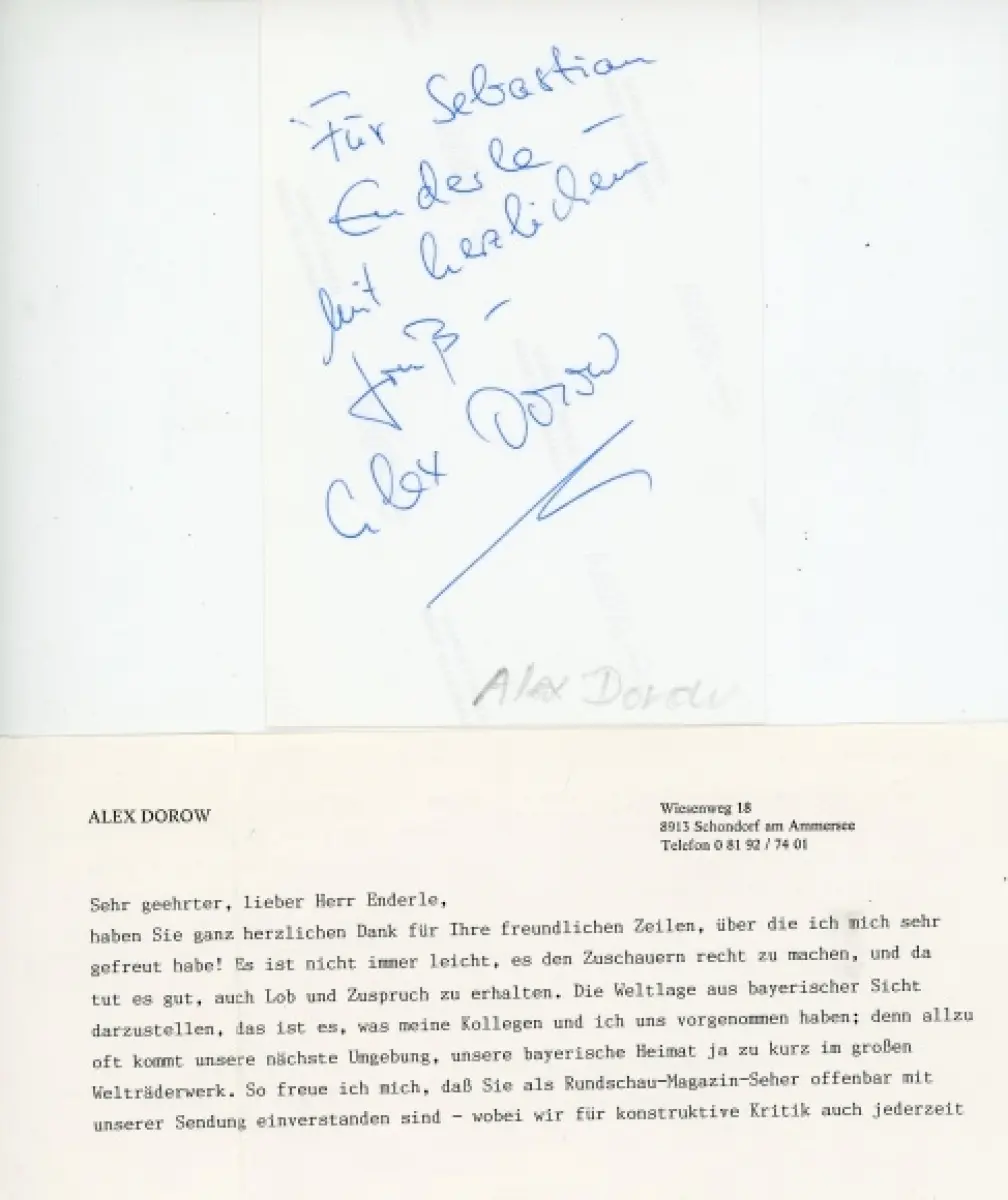 Für Sebastian
Enderle –
mit herzlichem
Gruß –
Alex Dorow
Alex Dorow
ALEX DOROW
Wiesenweg 18
8913 Schondorf am Ammersee
Telefon 0 81 92 / 74 01
Sehr geehrter, lieber Herr Enderle,
haben Sie ganz herzlichen Dank für Ihre freundlichen Zeilen, über die ich mich sehr
gefreut habe! Es ist nicht immer leicht, es den Zuschauern recht zu machen, und da
tut es gut, auch Lob und Zuspruch zu erhalten. Die Weltlage aus bayerischer Sicht
darzustellen, das ist es, was meine Kollegen und ich uns vorgenommen haben; denn allzu
oft kommt unsere nächste Umgebung, unsere bayerische Heimat ja zu kurz im großen
Welträderwerk. So freue ich mich, daß Sie als Rundschau-Magazin-Seher offenbar mit
unserer Sendung einverstanden sind – wobei wir für konstruktive Kritik auch jederzeit